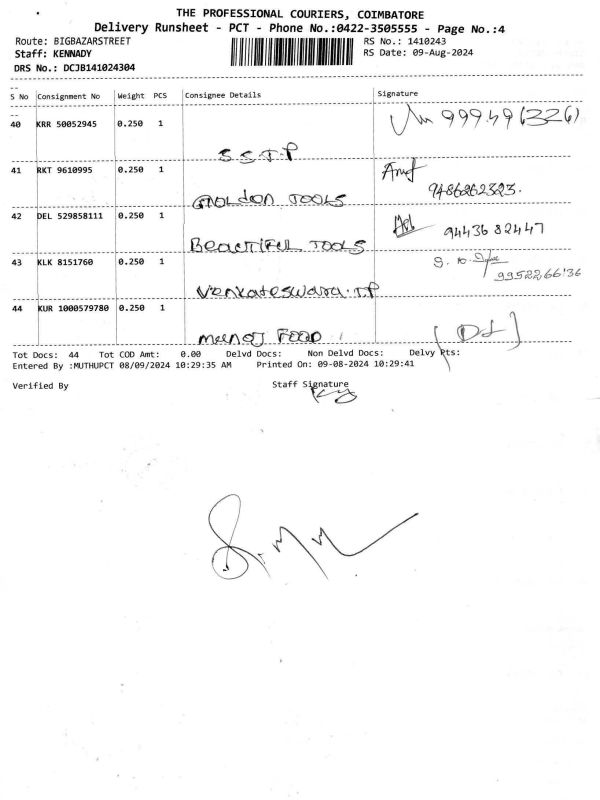 THE PROFESSIONAL COURIERS, COIMBATORE
Delivery Runsheet - PCT - Phone No.:0422-3505555 - Page No.:4
Route: BIGBAZARSTREET RS No.: 1410243
Staff: KENNADY RS Date: 09-Aug-2024
DRS No.: DCJB141024304
S No Consignment No Weight PCS Consignee Details Signature
40 KRR 50052945 0.250 1
S.S.T.P
41 RKT 9610995 0.250 1
9486262323.
GNOLDON TOOLS
42 DEL 529858111 0.250 1
9443682447
BEAUTIFUL TOOLS
43 KLK 8151760 0.250 1
9952266136
Venkateswara.TP
44 KUR 1000579780 0.250 1
FOOD
Tot Docs: 44 Tot COD Amt: 0.00 Delvd Docs: Non Delvd Docs: Delvy Pts:
Entered By :MUTHUPCT 08/09/2024 10:29:35 AM Printed On: 09-08-2024 10:29:41
Verified By Staff Signature